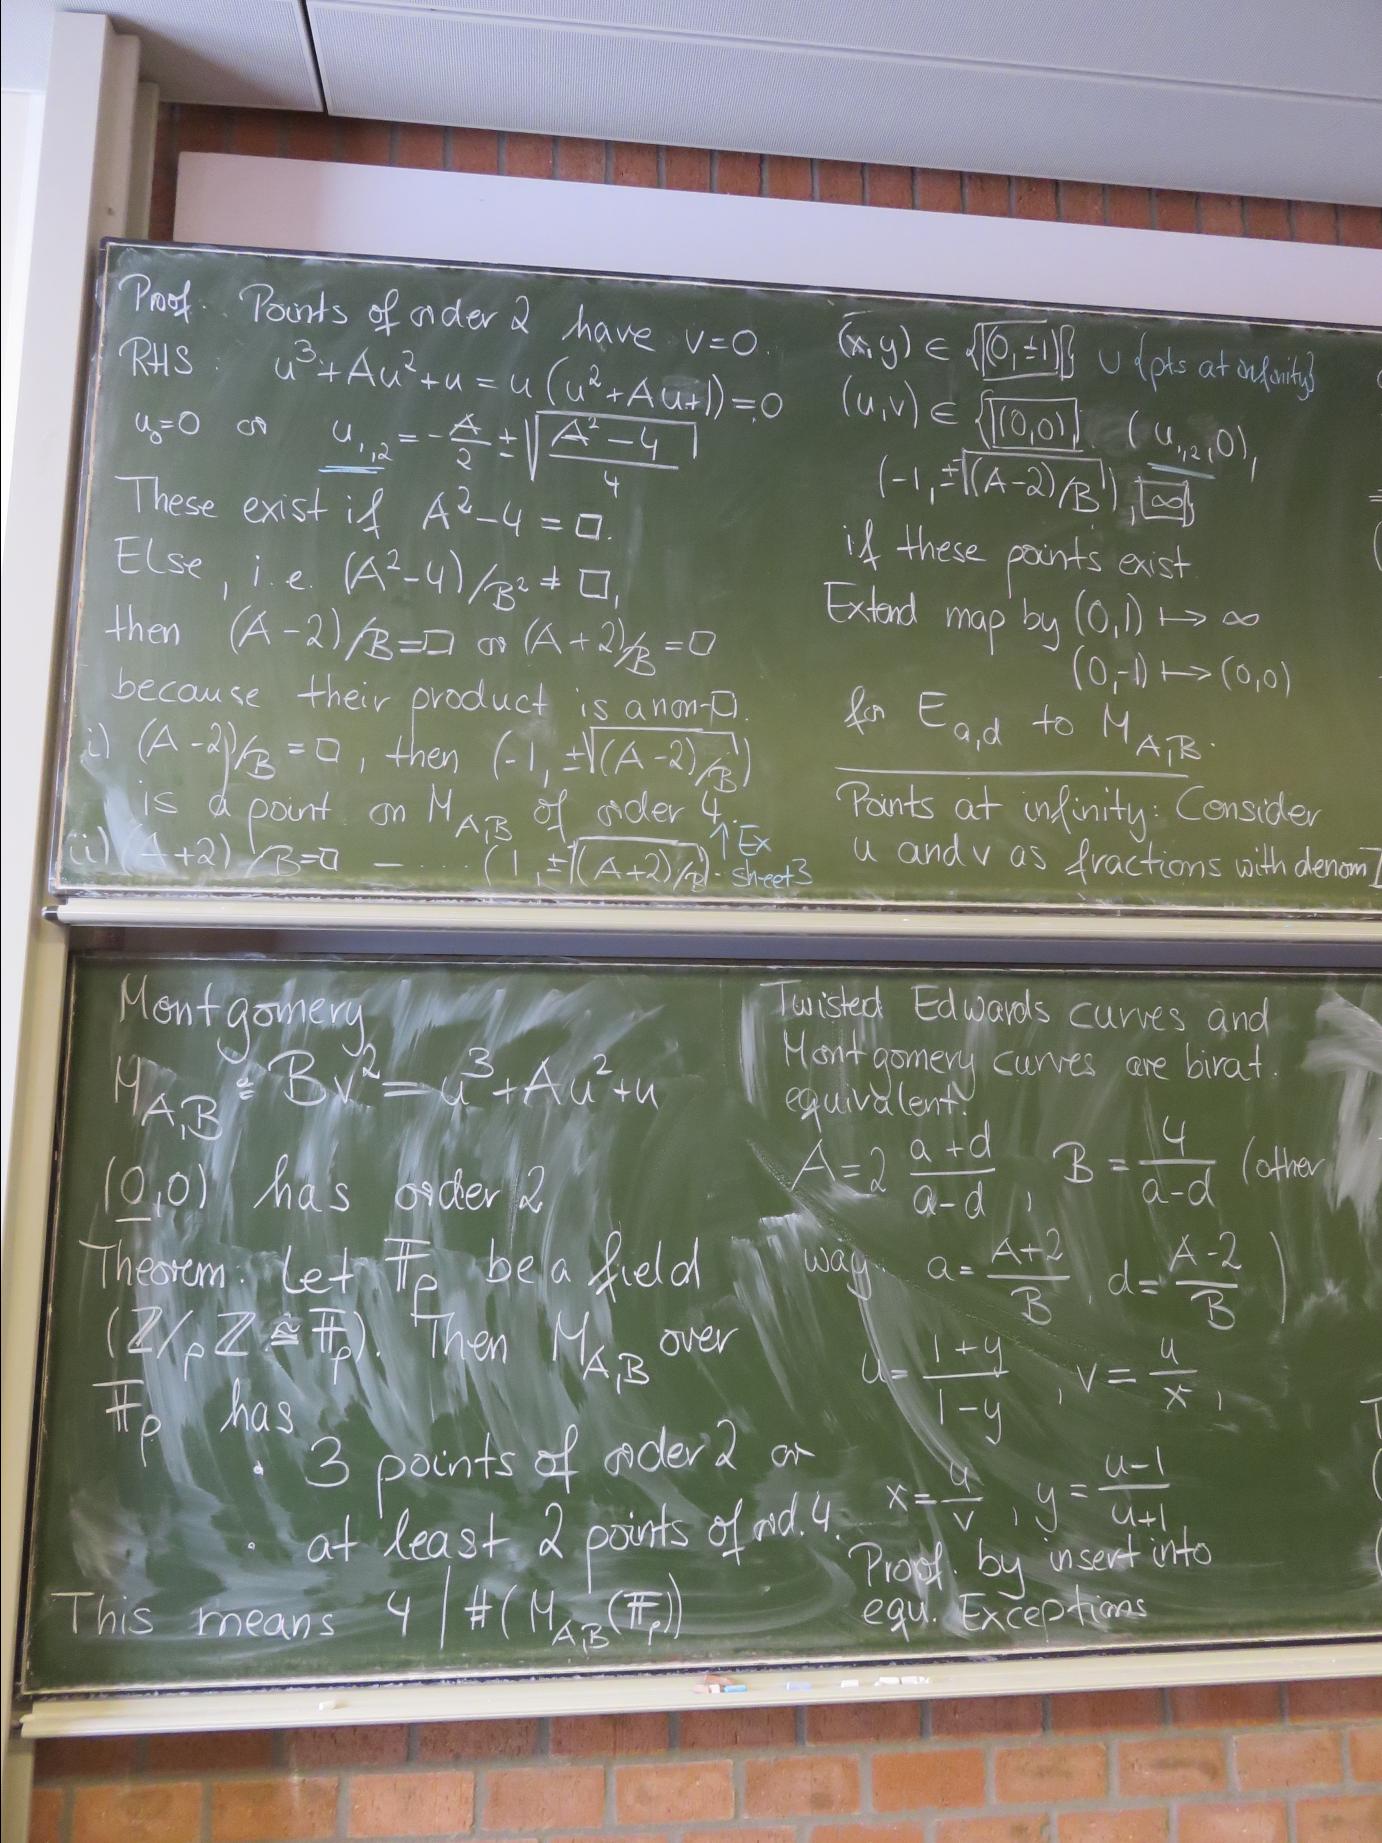 Proof. Points of order 2 have v=0.
RHS: u³+Au²+u = u(u²+Au+1)=0
u₀=0 or u₁,₂ = -A/2 ± √((A²-4)/4)
These exist if A²-4 = □.
Else, i.e. (A²-4)/B² ≠ □,
then (A-2)/B=□ or (A+2)/B=□
because their product is a non-□.
i) (A-2)/B=□, then (-1, ±√((A-2)/B))
is a point on M_{A,B} of order 4.
↑ Ex
sheet 3
ii) (A+2)/B=□ — .... (1, ±√((A+2)/B).
(x,y) ∈ {(0,±1)} ∪ {pts at infinity}
(u,v) ∈ {(0,0), (u₁,₂,0),
(-1, ±√((A-2)/B), ∞}
if these points exist
Extend map by (0,1) ↦ ∞
(0,-1) ↦ (0,0)
for E_{a,d} to M_{A,B}.
Points at infinity: Consider
u and v as fractions with denom
Montgomery
M_{A,B}: Bv² = u³+Au²+u
(0,0) has order 2
Theorem: Let 𝔽_p be a field
(ℤ/pℤ ≅ 𝔽_p). Then M_{A,B} over
𝔽_p has
· 3 points of order 2 or
· at least 2 points of ord. 4.
This means 4 | #(M_{A,B}(𝔽_p))
Twisted Edwards curves and
Montgomery curves are birat.
equivalent:
A = 2 (a+d)/(a-d), B = 4/(a-d) (other
way: a = (A+2)/B, d = (A-2)/B)
u = (1+y)/(1-y), v = u/x,
x = u/v, y = (u-1)/(u+1)
Proof. by insert into
equ. Exceptions